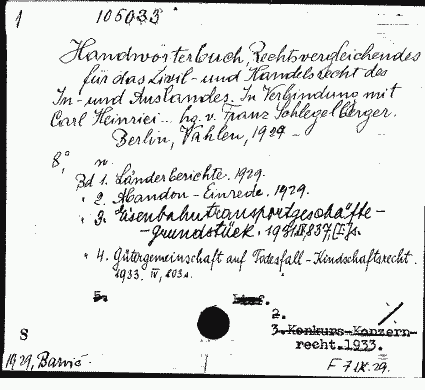 1 105035
Handwörterbuch, Rechtsvergleichendes
für das Zivil- und Handelsrecht des
In- und Auslandes. In Verbindung mit
Carl Heinrici... hg. v. Franz Schlegelberger.
Berlin, Vahlen, 1929-
8°, n.
Bd 1. Länderberichte. 1929.
" 2. Abandon - Einrede. 1929.
" 3. Eisenbahntransportgeschäfte-
-Grundstück. 1931. 837,
" 4. Gütergemeinschaft auf Todesfall - Kindschaftsrecht.
1933. IV,
5.
2.
3. Konkurs-Konzern-
recht. 1933.
8
1929, Barvič
F 7 IX. 29.